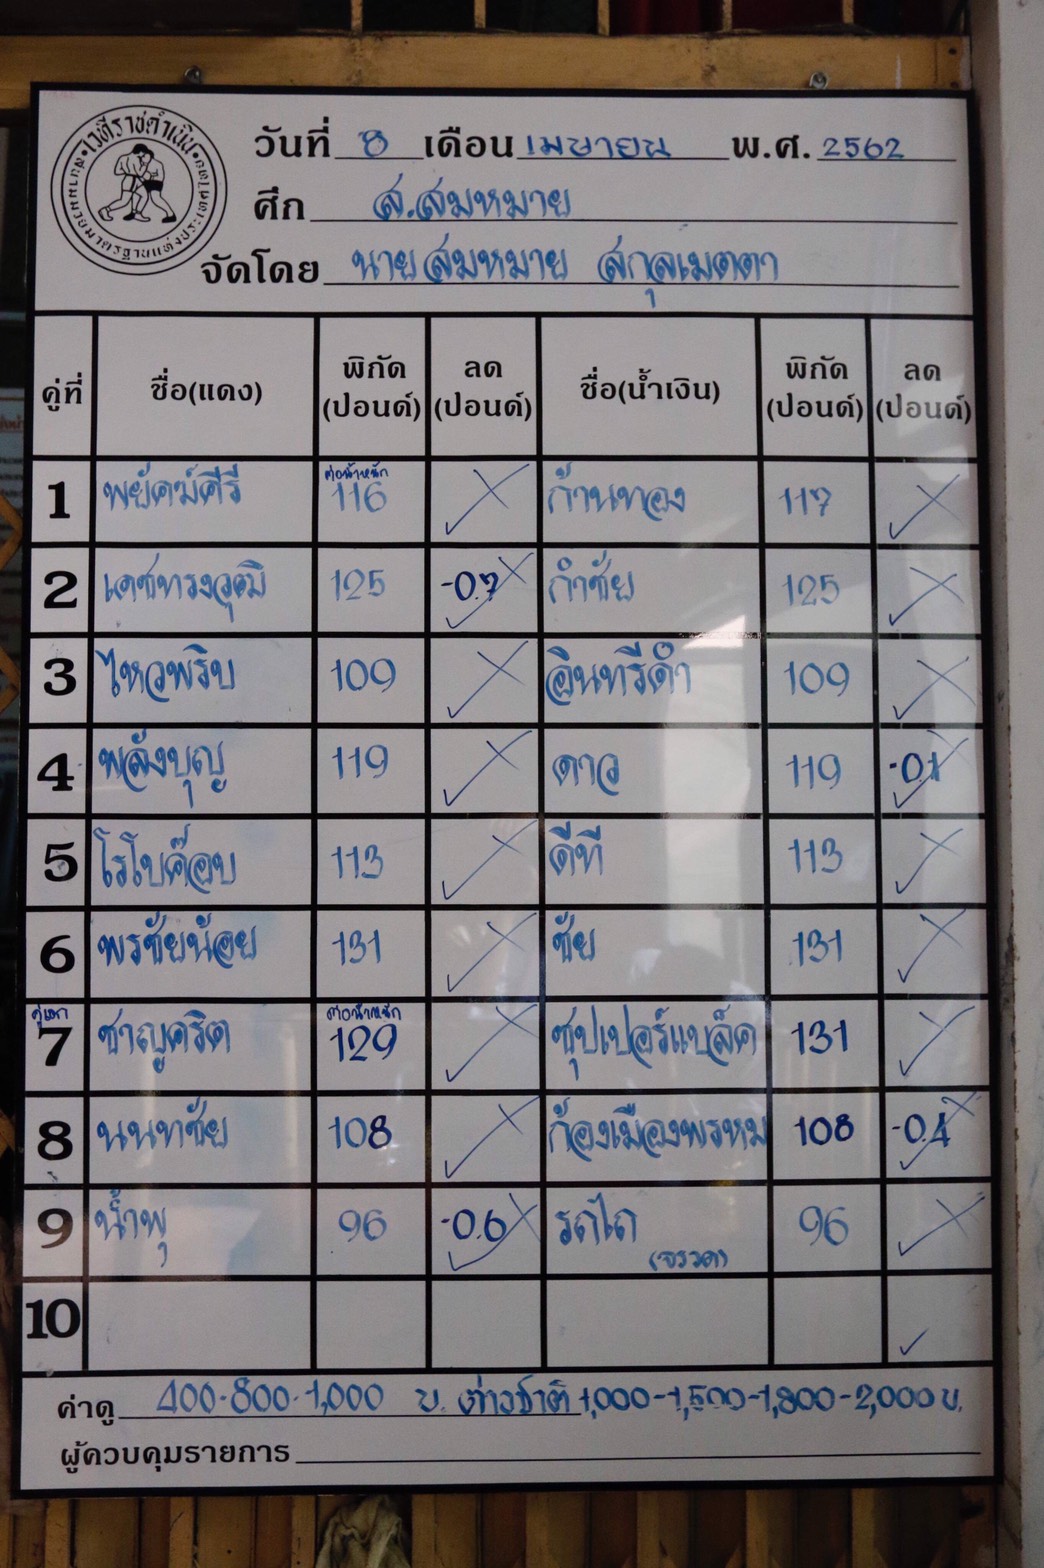 เวทีราชดำเนิน
วันที่ 8 เดือน เมษายน พ.ศ. 2562
ศึก ส.สมหมาย
จัดโดย นายสมหมาย สกุลเมตตา
คู่ที่ ชื่อ(แดง) พิกัด (ปอนด์) ลด (ปอนด์) ชื่อ(น้ำเงิน) พิกัด (ปอนด์) ลด (ปอนด์)
ต่อน้ำหนัก
1 พยัคฆ์ศิริ 116 ก้านทอง 117
2 เดชทรงวุฒิ 125 -0.7 กำชัย 125
3 ไหวพริบ 109 อินทรีดำ 109
4 พลังบุญ 119 ดาว 119 -0.1
5 โรโบค็อบ 113 ดีที 113
6 พรชัยน้อย 131 ชัย 131
คู่เอก ต่อน้ำหนัก
7 ชาญคริต 129 ซุปเปอร์แบล็ค 131
8 นนทชัย 108 ก้องเมืองพรหม 108 -0.4
9 น้ำพุ 96 -0.6 รถไถ 96
10
ค่าดู 400-800-1,000 บ. ต่างชาติ 1,000-1,500-1,800-2,000 บ.
ผู้ควบคุมรายการ